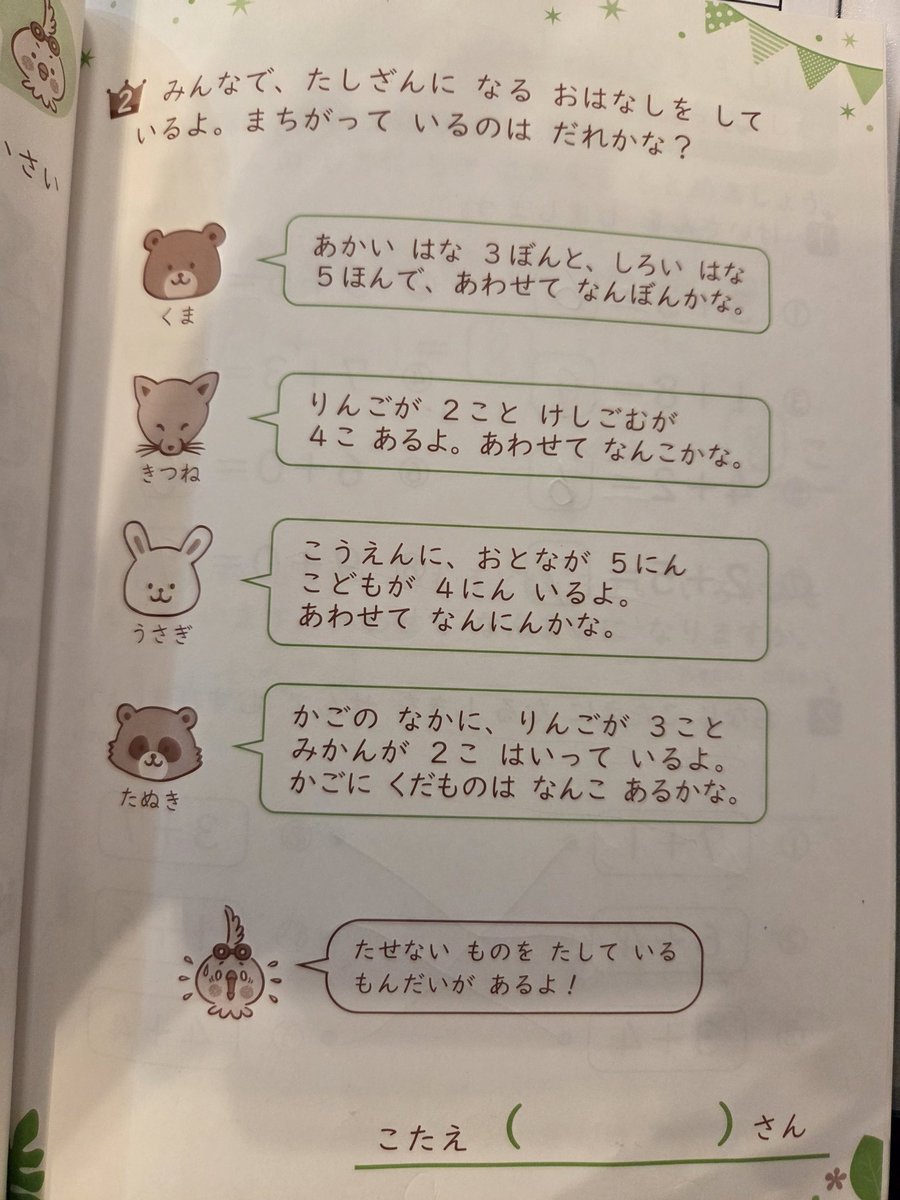 いさい
2 みんなで、たしざんに なる おはなしを して
いるよ。まちがって いるのは だれかな？
あかい はな 3ぼんと、しろい はな
5ほんで、あわせて なんぼんかな。
くま
りんごが 2こと けしごむが
4こ あるよ。あわせて なんこかな。
きつね
こうえんに、おとなが 5にん
こどもが 4にん いるよ。
あわせて なんにんかな。
うさぎ
かごの なかに、りんごが 3こと
みかんが 2こ はいって いるよ。
かごに くだものは なんこ あるかな。
たぬき
たせない ものを たして いる
もんだいが あるよ！
こたえ （ ）さん